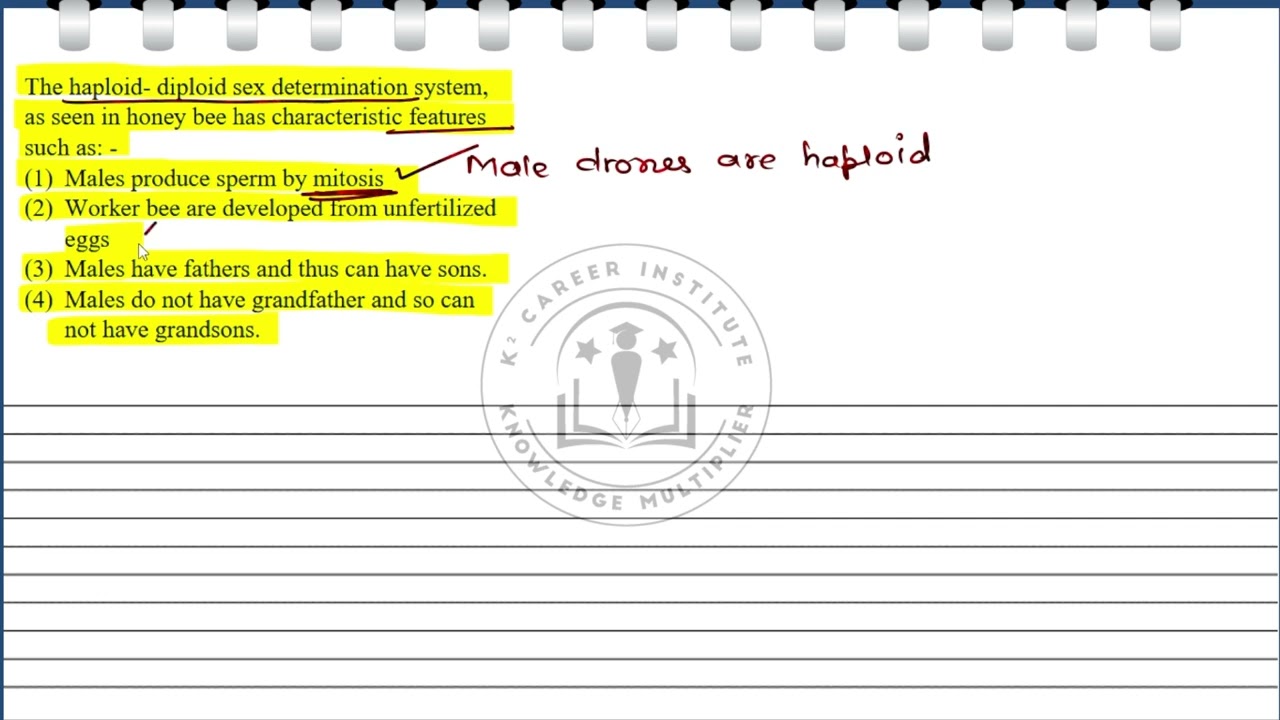 The haploid- diploid sex determination system,
as seen in honey bee has characteristic features
such as: -
(1) Males produce sperm by mitosis
Male drones are haploid
(2) Worker bee are developed from unfertilized
eggs
(3) Males have fathers and thus can have sons.
(4) Males do not have grandfather and so can
not have grandsons.
K² CAREER INSTITUTE
KNOWLEDGE MULTIPLIER